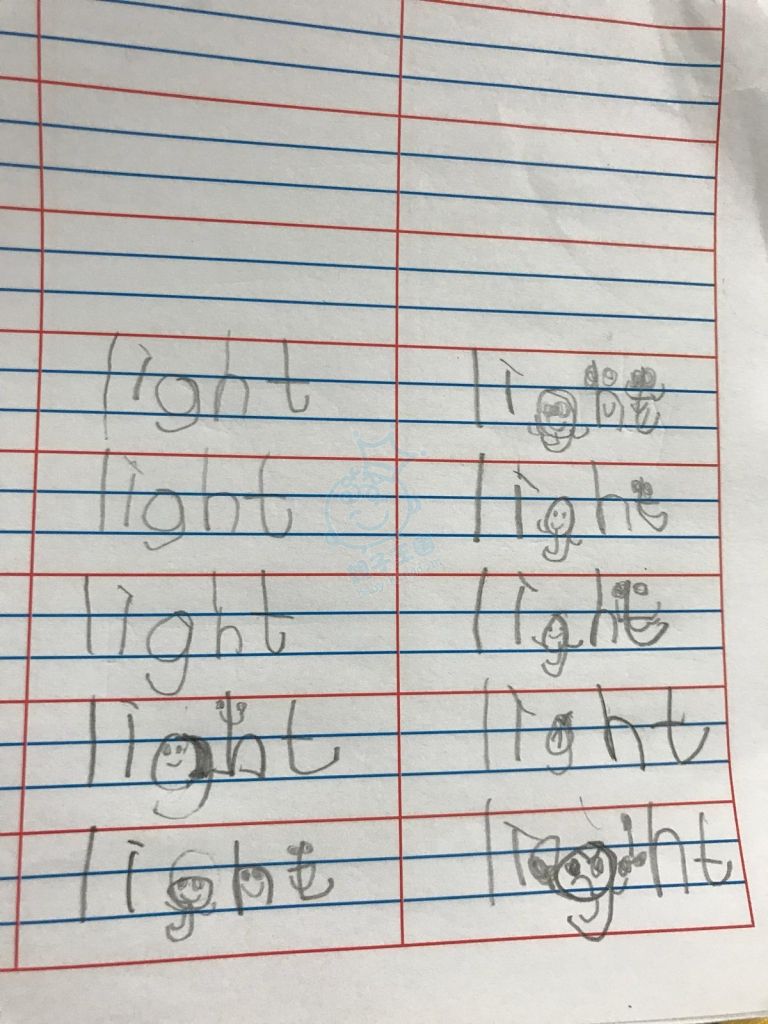 light light
light light
light light
light light
light light